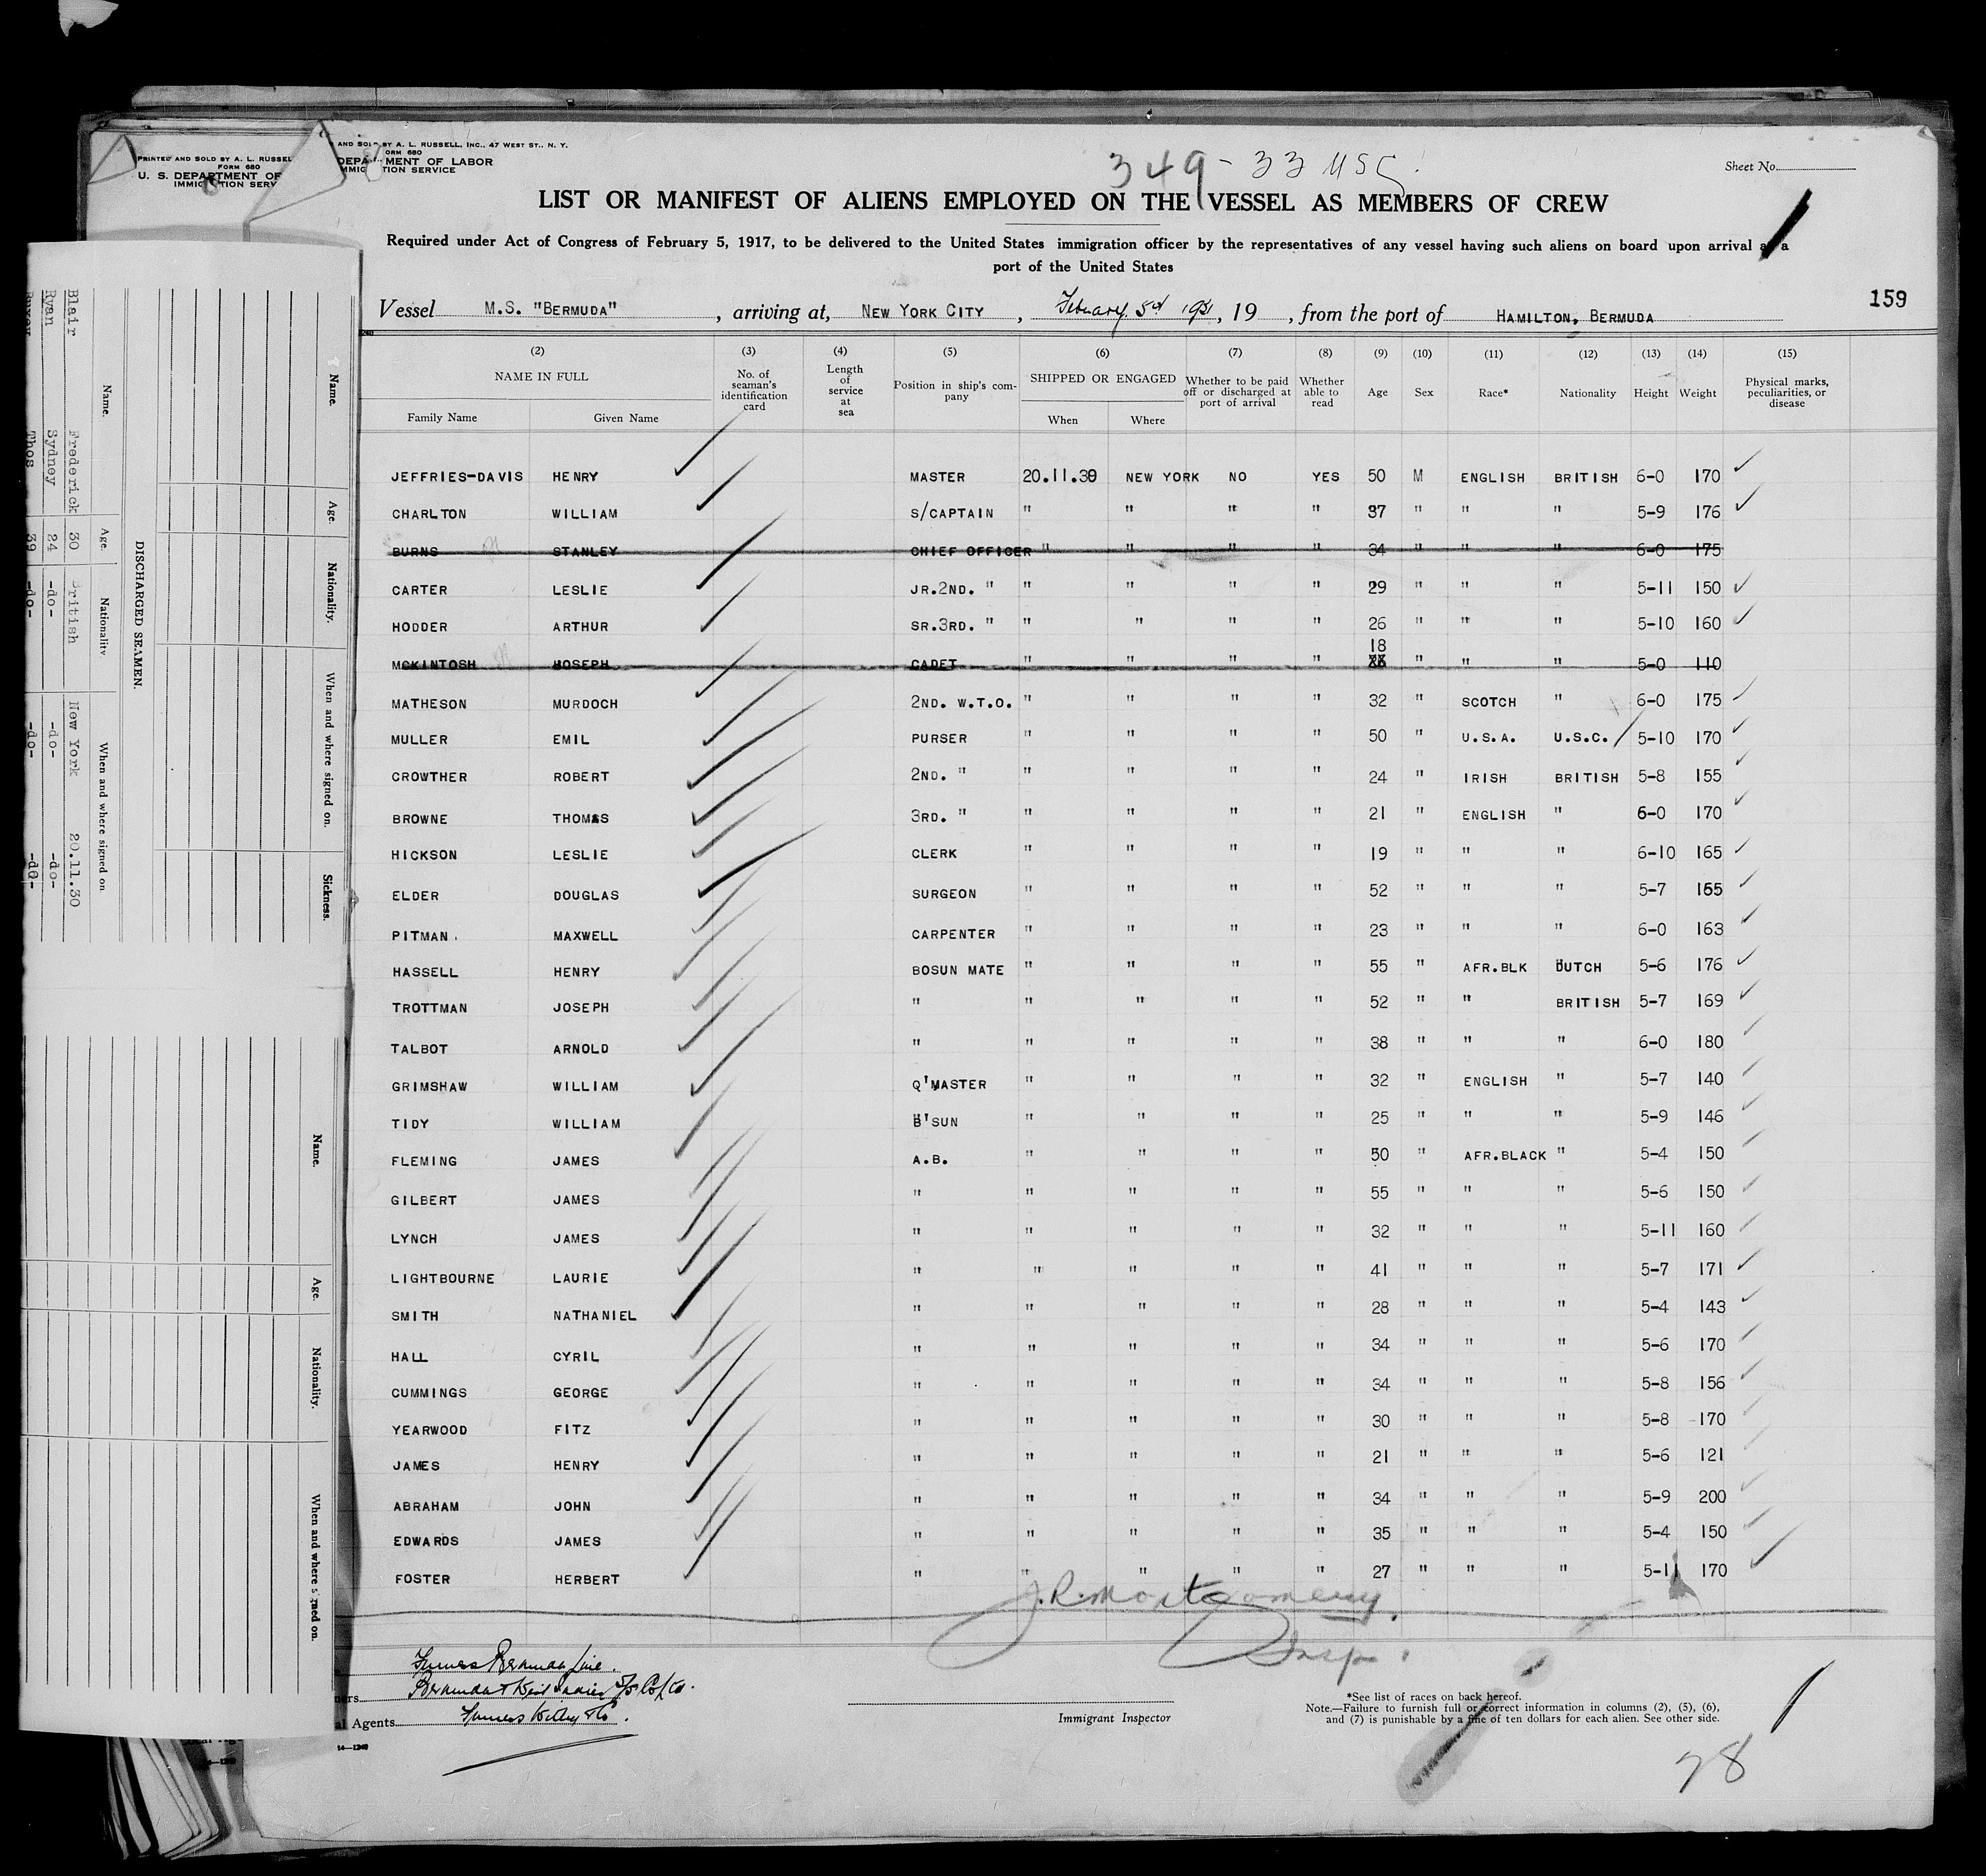 PRINTED AND SOLD BY A. L. RUSSEL
FORM 680
U. S. DEPARTMENT OF
AND SOLD BY A. L. RUSSELL, INC., 47 WEST ST., N. Y.
FORM 680
DEPARTMENT OF LABOR
349-33 USC
Sheet No.
LIST OR MANIFEST OF ALIENS EMPLOYED ON THE VESSEL AS MEMBERS OF CREW
Required under Act of Congress of February 5, 1917, to be delivered to the United States immigration officer by the representatives of any vessel having such aliens on board upon arrival at a
port of the United States
Vessel M.S. "BERMUDA", arriving at, NEW YORK CITY, February 5th 1931, 19 , from the port of HAMILTON, BERMUDA
159
(2) (3) (4) (5) (6) (7) (8) (9) (10) (11) (12) (13) (14) (15)
NAME IN FULL
Family Name Given Name
No. of seaman's identification card
Length of service at sea
Position in ship's company
SHIPPED OR ENGAGED
When Where
Whether to be paid off or discharged at port of arrival
Whether able to read
Age Sex Race* Nationality Height Weight
Physical marks, peculiarities, or disease
JEFFRIES-DAVIS HENRY MASTER 20.11.30 NEW YORK NO YES 50 M ENGLISH BRITISH 6-0 170
CHARLTON WILLIAM S/CAPTAIN " " " " 37 " " " 5-9 176
BURNS STANLEY CHIEF OFFICER " " " " 34 " " " 6-0 175
CARTER LESLIE JR.2ND. " " " " " 29 " " " 5-11 150
HODDER ARTHUR SR.3RD. " " " " " 26 " " " 5-10 160
18
MCKINTOSH JOSEPH CADET " " " " " " " 5-0 110
MATHESON MURDOCH 2ND. W.T.O. " " " " 32 " SCOTCH " 6-0 175
MULLER EMIL PURSER " " " " 50 " U.S.A. U.S.C. 5-10 170
CROWTHER ROBERT 2ND. " " " " " 24 " IRISH BRITISH 5-8 155
BROWNE THOMAS 3RD. " " " " " 21 " ENGLISH " 6-0 170
HICKSON LESLIE CLERK " " " " 19 " " " 6-10 165
ELDER DOUGLAS SURGEON " " " " 52 " " " 5-7 155
PITMAN MAXWELL CARPENTER " " " " 23 " " " 6-0 163
HASSELL HENRY BOSUN MATE " " " " 55 " AFR.BLK DUTCH 5-6 176
TROTTMAN JOSEPH " " " " " 52 " " BRITISH 5-7 169
TALBOT ARNOLD " " " " " 38 " " " 6-0 180
GRIMSHAW WILLIAM Q'MASTER " " " " 32 " ENGLISH " 5-7 140
TIDY WILLIAM B'SUN " " " " 25 " " " 5-9 146
FLEMING JAMES A.B. " " " " 50 " AFR.BLACK " 5-4 150
GILBERT JAMES " " " " " 55 " " " 5-6 150
LYNCH JAMES " " " " " 32 " " " 5-11 160
LIGHTBOURNE LAURIE " " " " " 41 " " " 5-7 171
SMITH NATHANIEL " " " " " 28 " " " 5-4 143
HALL CYRIL " " " " " 34 " " " 5-6 170
CUMMINGS GEORGE " " " " " 34 " " " 5-8 156
YEARWOOD FITZ " " " " " 30 " " " 5-8 170
JAMES HENRY " " " " " 21 " " " 5-6 121
ABRAHAM JOHN " " " " " 34 " " " 5-9 200
EDWARDS JAMES " " " " " 35 " " " 5-4 150
FOSTER HERBERT " " " " " 27 " " " 5-11 170
J.R. Montgomery
Insp.
Furness Bermuda Line.
Bermuda & West Indies S/S Co Ltd.
al Agents Furness Withy & Co.
Immigrant Inspector
*See list of races on back hereof.
Note.—Failure to furnish full or correct information in columns (2), (5), (6),
and (7) is punishable by a fine of ten dollars for each alien. See other side.
28
14—1240
Name. Age. Nationality. When and where signed on. Sickness.
DISCHARGED SEAMEN.
Name. Age. Nationality When and where signed on
Blair Frederick 30 British New York 20.11.30
Ryan Sydney 24 -do- -do- -do-
Thos 39 -do- -do- -do-
Name. Age. Nationality. When and where signed on.